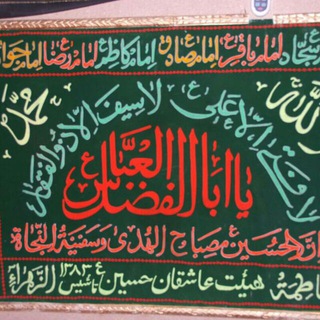 سجاد ع امام باقر ع امام صادق ع امام کاظم ع امام رضا ع امام جواد
الله
محمد
لا فتی الا علی لا سیف الا ذوالفقار
یا اباالفضل العباس ع
ان الحسین مصباح الهدی و سفینة النجاة
فاطمة الزهراء
هیئت عاشقان حسین ع تاسیس ۱۳۸۲